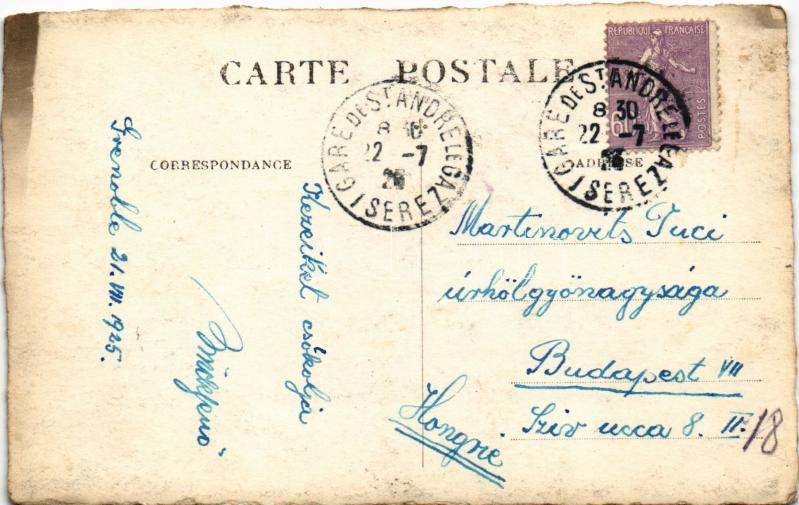 CARTE POSTALE
CORRESPONDANCE
ADRESSE
RÉPUBLIQUE FRANÇAISE
POSTES
60
GARE DE ST ANDRE LE GAZ
8 30
22 -7
25
ISERE
GARE DE ST ANDRE LE GAZ
8 30
22 -7
ISERE
Grenoble 21. VII. 1925.
Kezeiket csókolja
Martinovits Tuci
úrhölgyőnagysága
Budapest VII
Sziv ucca 8. II. 18
Hongrie